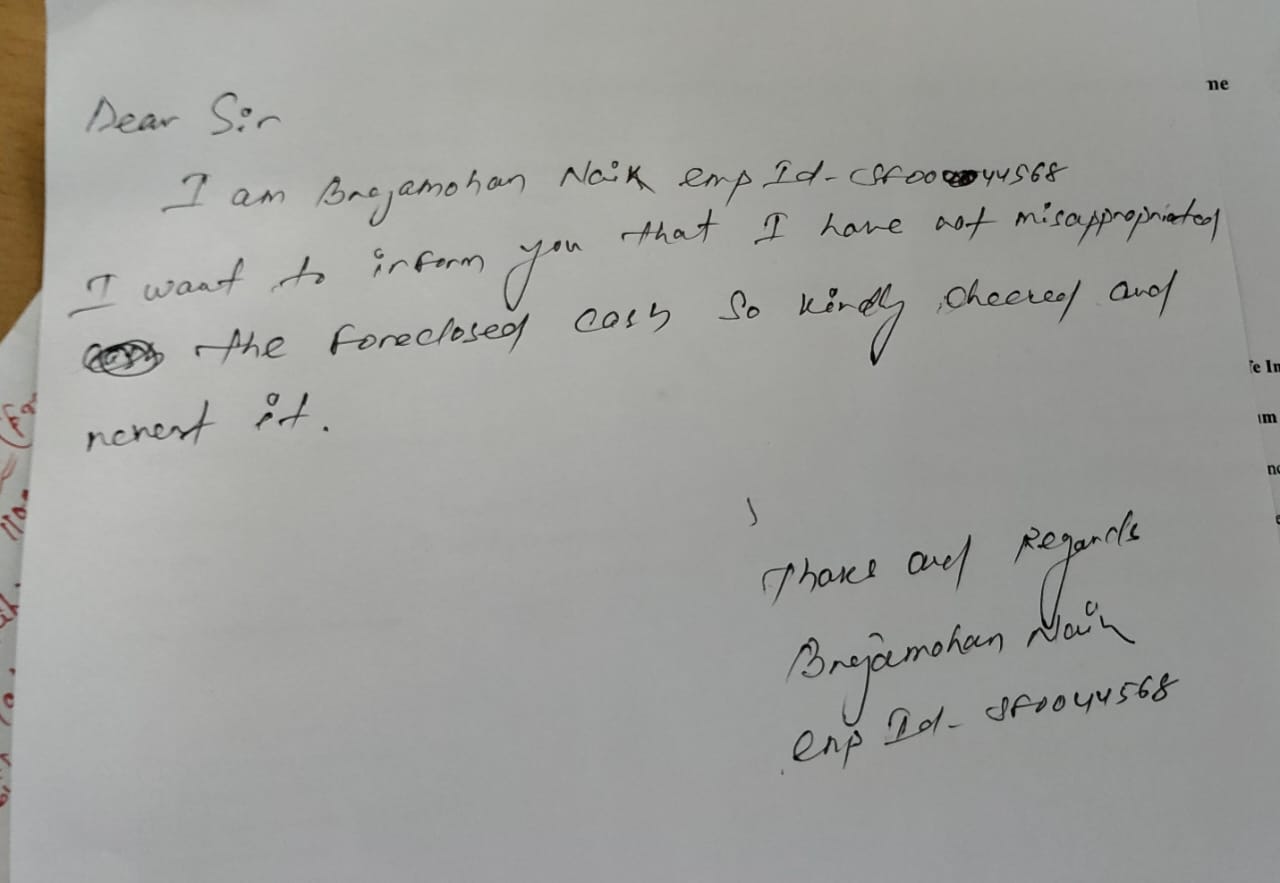 Dear Sir
I am Brajamohan Naik emp Id- SF0044568
I want to inform you that I have not misappropriated
the foreclosed cash so kindly checked and
revert it.
Thanks and Regards
Brajamohan Naik
emp Id- SF0044568
ne